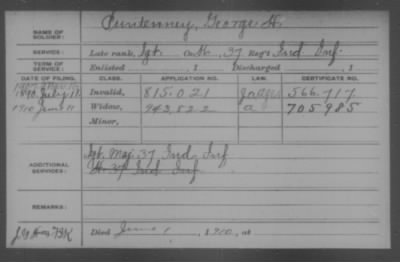 NAME OF SOLDIER: Puntenney, George H.
SERVICE: Late rank, Sgt. Co. H, 37 Reg't Ind. Inf.
TERM OF SERVICE: Enlisted , 1 Discharged , 1
DATE OF FILING. CLASS. APPLICATION NO. LAW. CERTIFICATE NO.
1890 July 11 Invalid, 815.021 566.717
1910 June 11 Widow, 943.822 a 705985
Minor,
ADDITIONAL SERVICES: Sgt. Maj. 37 Ind. Inf
H. 37 Ind. Inf
REMARKS:
Died June 1, 1910, at